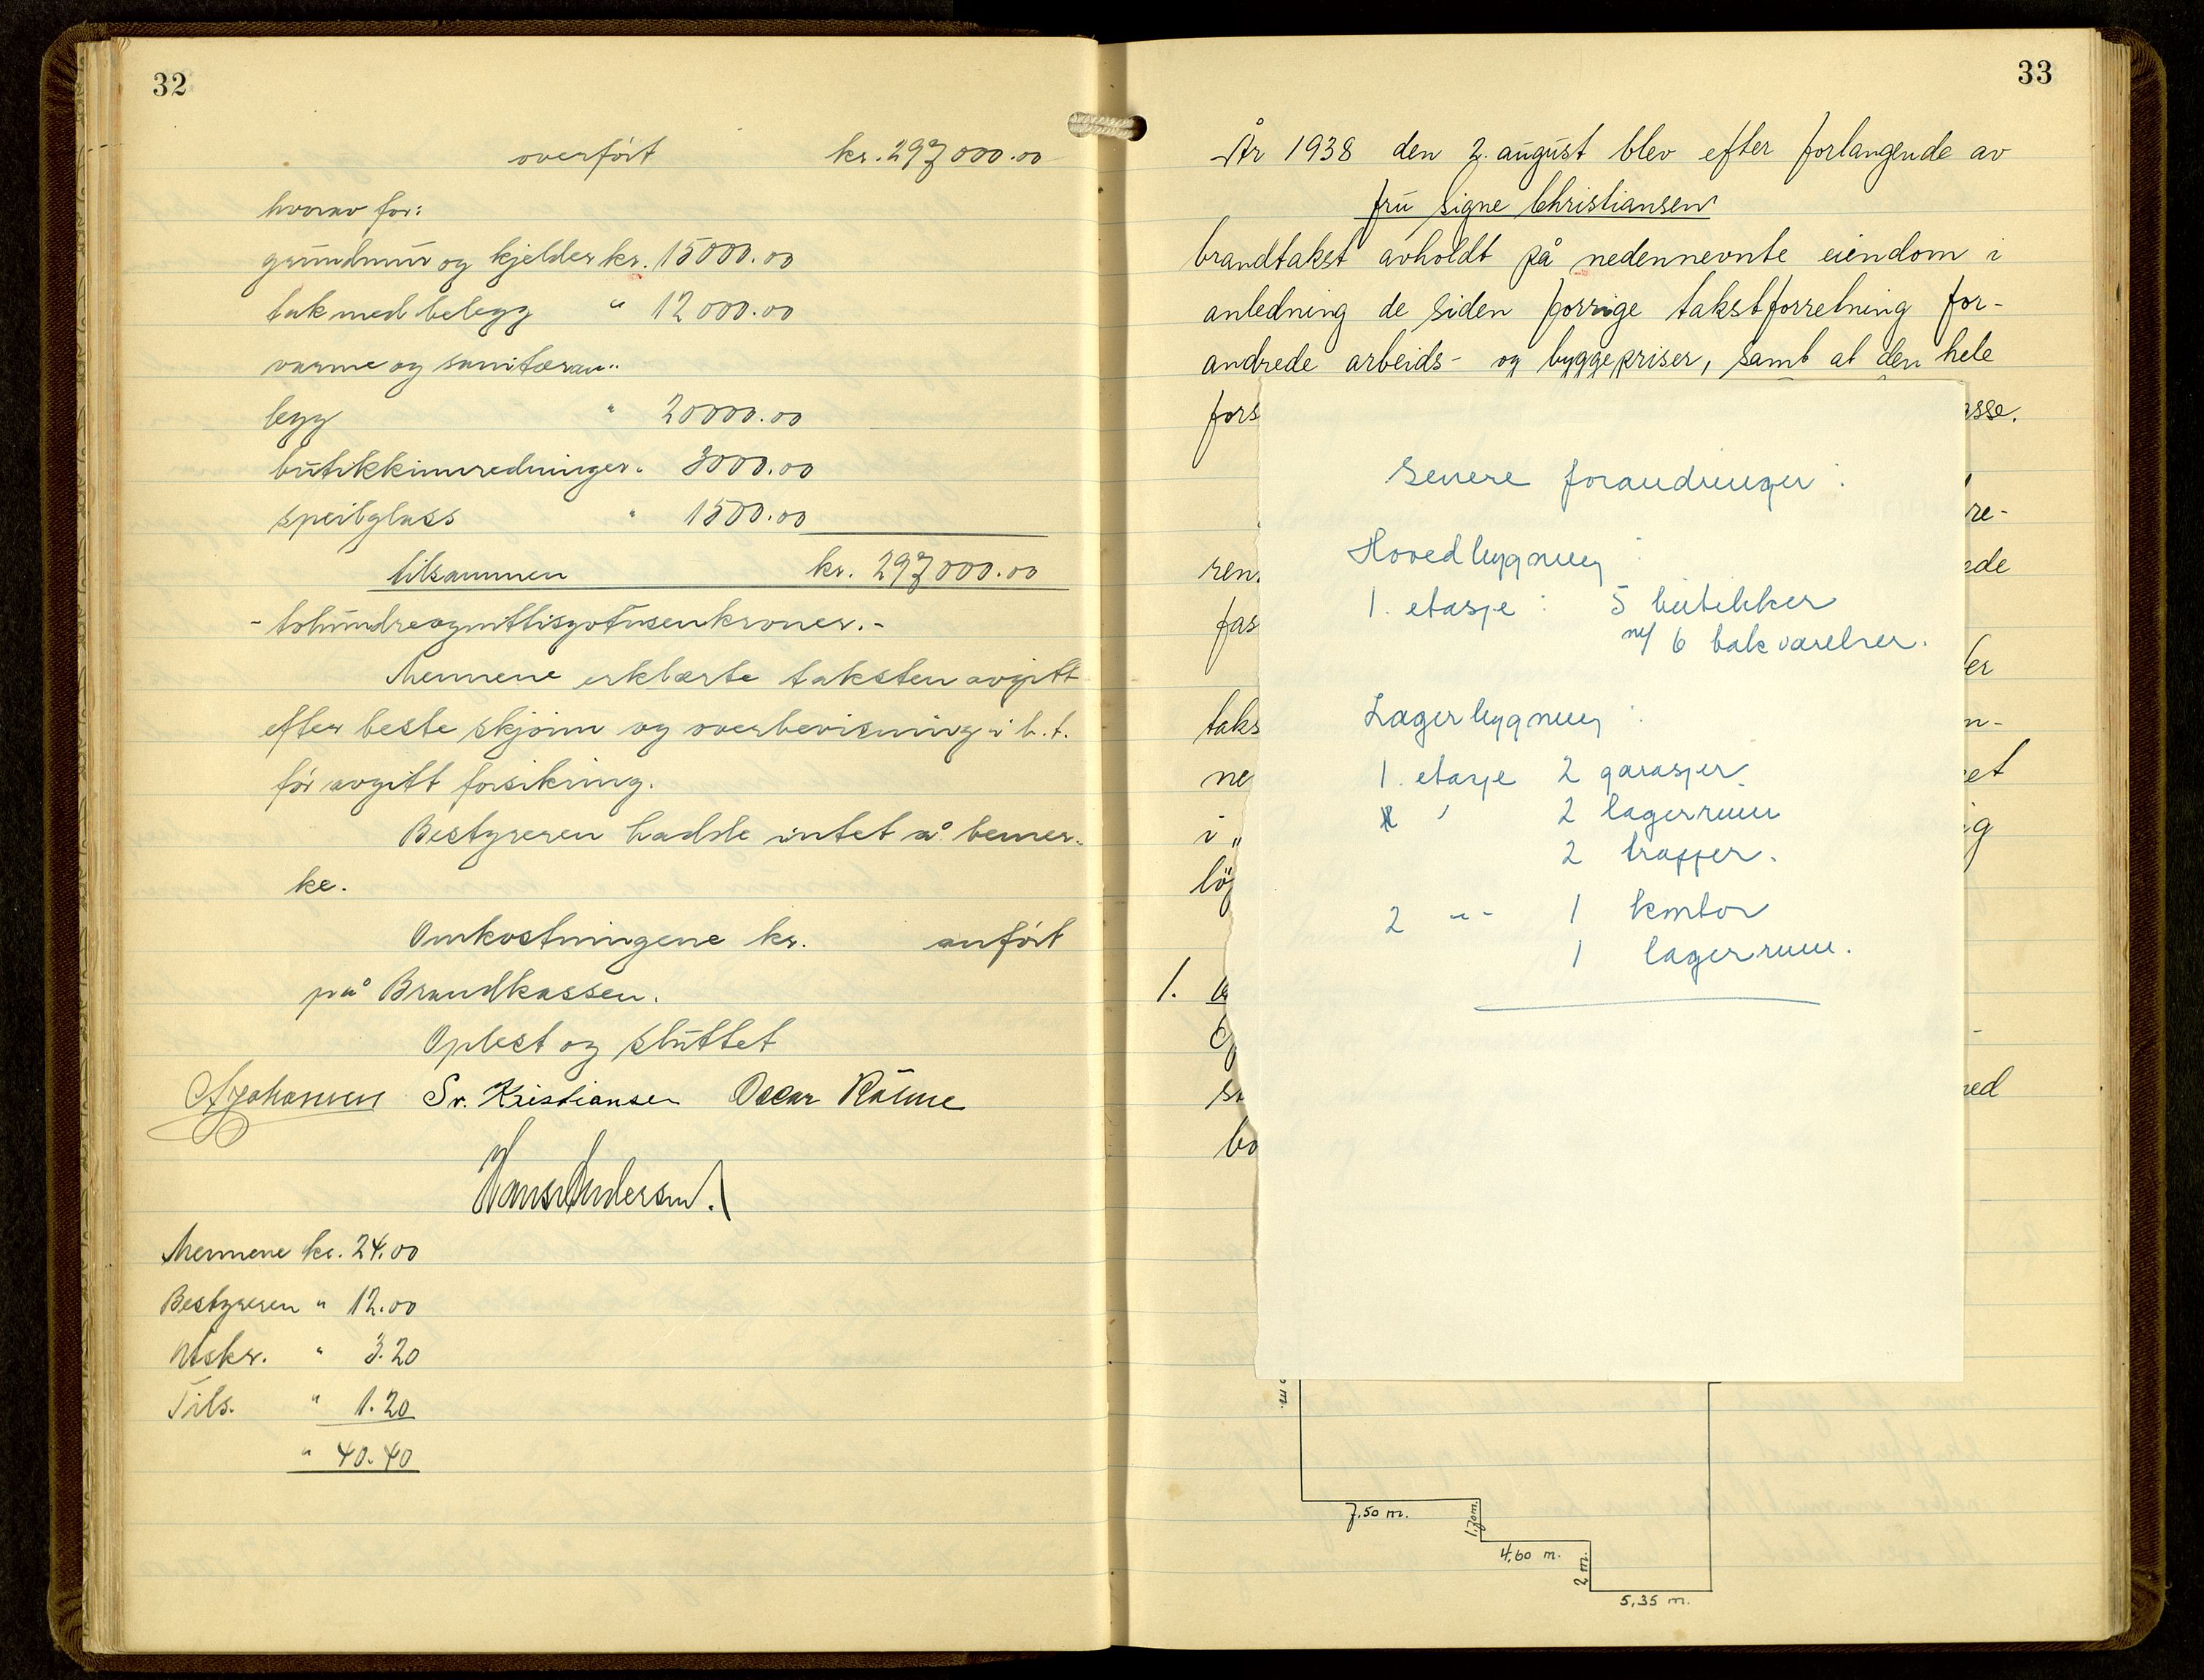 32
overført kr. 297000.00
hvorav for:
grundmur og kjelder kr. 15000.00
tak med belegg " 12000.00
varme og sanitæran-
legg " 20000.00
butikkinnredninger " 3000.00
speilglass " 1500.00
tilsammen kr. 297000.00
- tohundreognittisyvtusenkroner.-
Mennene erklærte taksten avgitt
efter beste skjønn og overbevisning i h.t.
før avgitt forsikring.
Bestyreren hadde intet å bemer-
ke.
Omkostningene kr. anført
på Brandkassen.
Oplest og sluttet
Sv. Kristiansen Oscar
Hans Andersen.
Mennene kr. 24.00
Bestyreren " 12.00
Utskr. " 3.20
Tils. " 1.20
" 40.40
33
År 1938 den 2. august blev efter forlangende av
fru Signe Christiansen
brandtakst avholdt på nedennevnte eiendom i
anledning de siden forrige takstforretning for-
andrede arbeids- og byggepriser, samt at den hele
fors asse.
re-
ren. de
fas
er
taks n-
ne et
i „ ig
lö
1.
s ned
bo
Senere forandringer :
Hovedbygning :
1. etasje : 5 butikker
m/ 6 bakværelser.
Lagerbygning :
1. etasje 2 garasjer
" 2 lagerrum
2 trapper.
2 -"- 1 kontor
1 lagerrum.
m.
7.50 m.
1.70 m.
4,60 m.
2 m.
5,35 m.